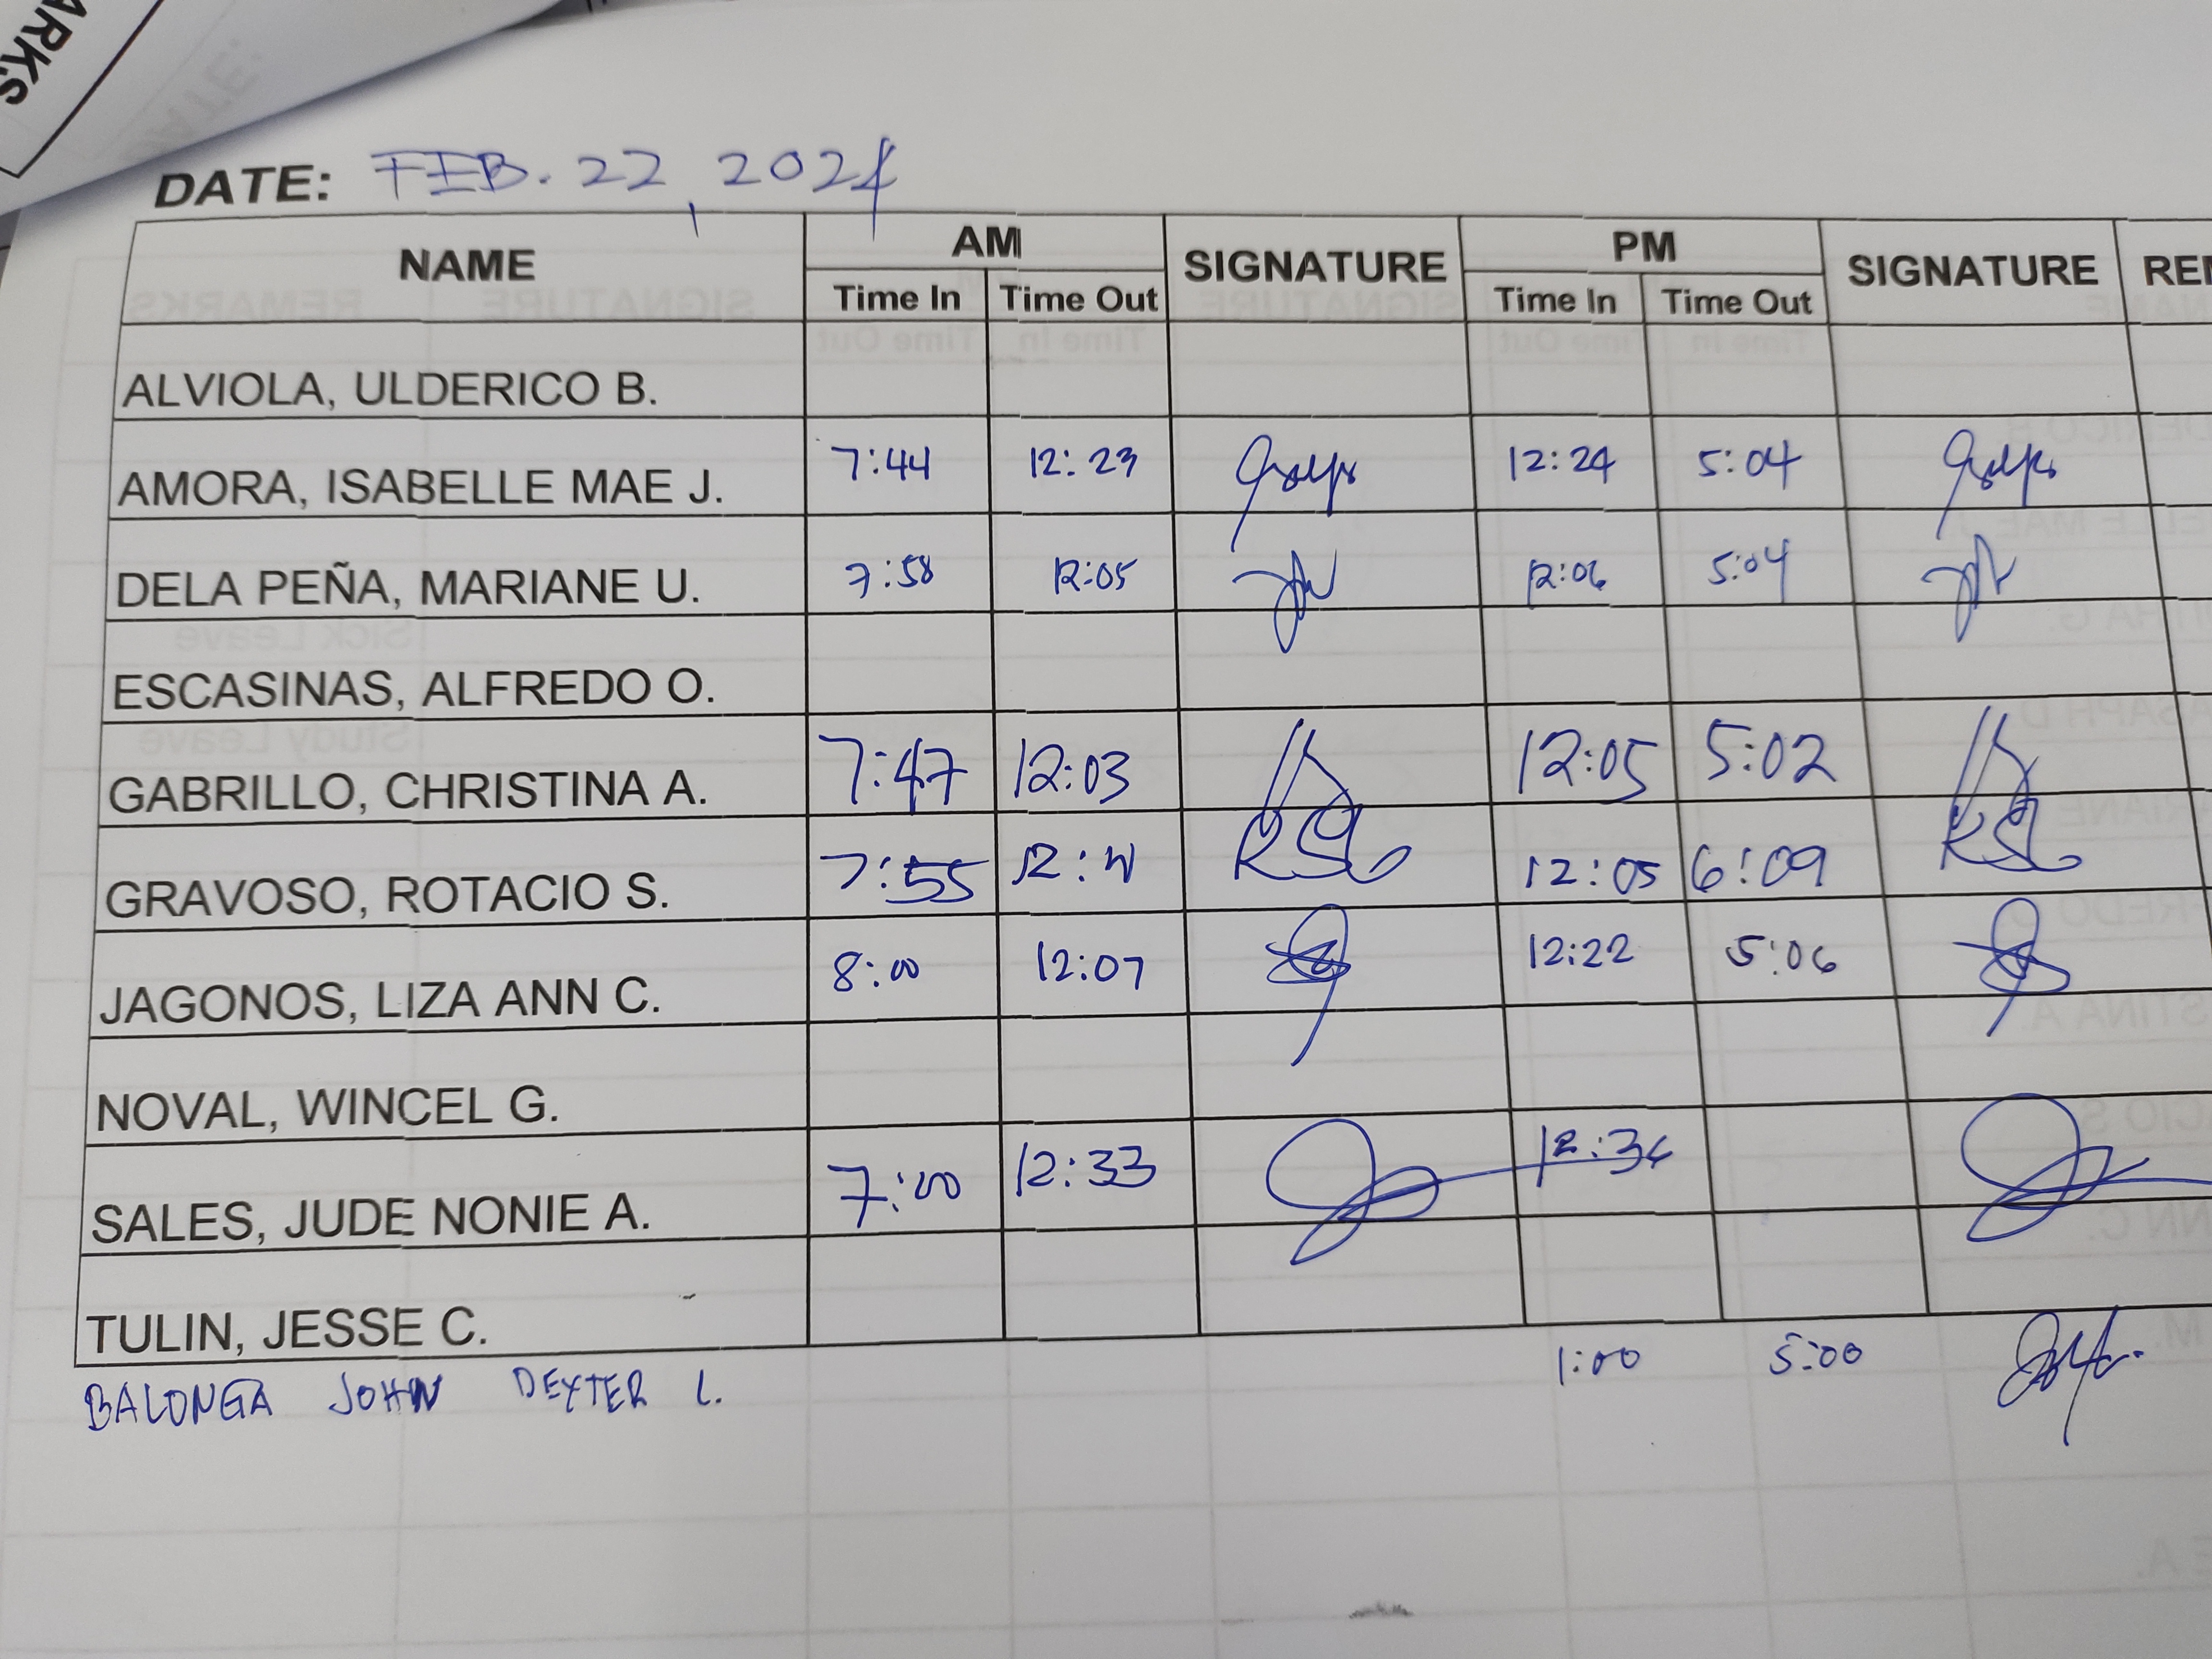 ARKS
DATE: FEB. 22, 2024
NAME AM SIGNATURE PM SIGNATURE REM
Time In Time Out Time In Time Out
ALVIOLA, ULDERICO B.
AMORA, ISABELLE MAE J. 7:44 12:23 12:24 5:04
DELA PEÑA, MARIANE U. 7:58 12:05 12:06 5:04
ESCASINAS, ALFREDO O.
GABRILLO, CHRISTINA A. 7:47 12:03 12:05 5:02
GRAVOSO, ROTACIO S. 7:55 RSG 12:05 6:09 RSG
JAGONOS, LIZA ANN C. 8:00 12:07 12:22 5:06
NOVAL, WINCEL G.
SALES, JUDE NONIE A. 7:00 12:33 12:34
TULIN, JESSE C.
BALONGA JOHN DEXTER L. 1:00 5:00